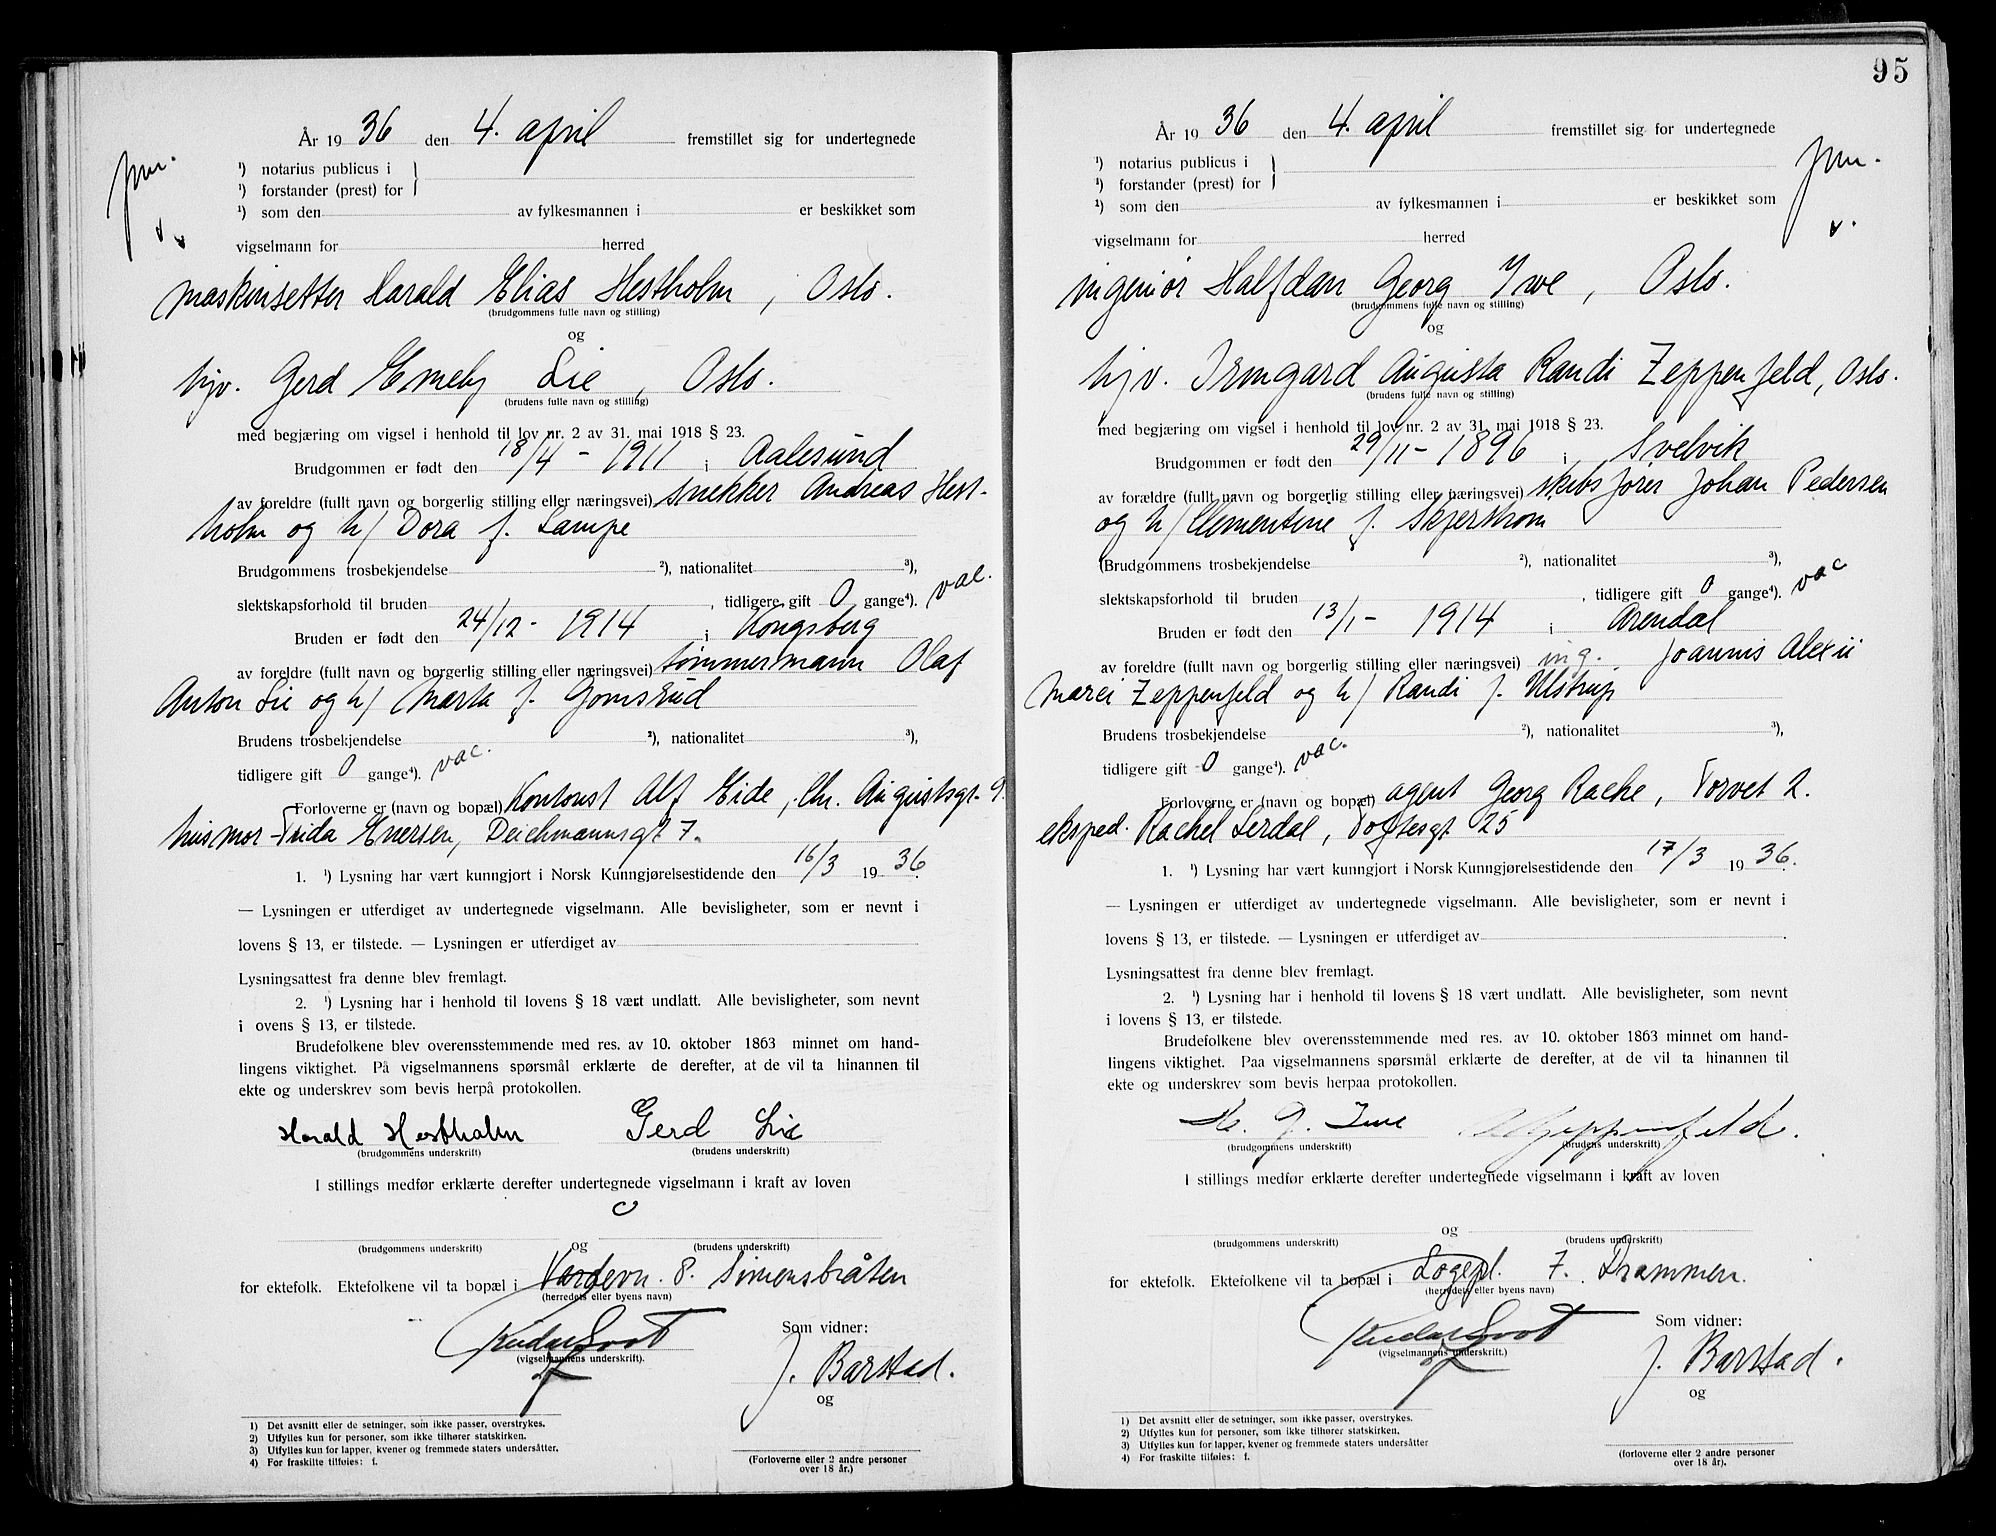 År 19 36 den 4. april fremstillet sig for undertegnede
jnw.
¹) notarius publicus i
¹) forstander (prest) for
¹) som den av fylkesmannen i er beskikket som
vigselmann for herred
maskinsetter Harald Elias Hestholm, Oslo.
(brudgommens fulle navn og stilling)
og
hjv. Gerd Emely Lie, Oslo.
(brudens fulle navn og stilling)
med begjæring om vigsel i henhold til lov nr. 2 av 31. mai 1918 § 23.
Brudgommen er født den 18/4 - 1911 i Aalesund
av foreldre (fullt navn og borgerlig stilling eller næringsvei) snekker Andreas Hest-
holm og h/ Dora f. Lampe
Brudgommens trosbekjendelse ²), nationalitet ³),
slektskapsforhold til bruden , tidligere gift 0 gange⁴). vac.
Bruden er født den 24/12 - 1914 i Kongsberg
av foreldre (fullt navn og borgerlig stilling eller næringsvei) tømmermann Olaf
Anton Lie og h/ Marta f. Gomsrud
Brudens trosbekjendelse ²), nationalitet ³),
tidligere gift 0 gange⁴). vac.
Forloverne er (navn og bopæl) Kontorist Alf Eide, Chr. Augustsgt. 9.
husmor Frida Eversen, Deichmannsgt 7.
1. ¹) Lysning har vært kunngjort i Norsk Kunngjørelsestidende den 16/3 19 36.
— Lysningen er utferdiget av undertegnede vigselmann. Alle bevisligheter, som er nevnt i
lovens § 13, er tilstede. — Lysningen er utferdiget av
Lysningsattest fra denne blev fremlagt.
2. ¹) Lysning har i henhold til lovens § 18 vært undlatt. Alle bevisligheter, som nevnt
i ovens § 13, er tilstede.
Brudefolkene blev overensstemmende med res. av 10. oktober 1863 minnet om hand-
lingens viktighet. På vigselmannens spørsmål erklærte de derefter, at de vil ta hinannen til
ekte og underskrev som bevis herpå protokollen.
Harald Hestholm Gerd Lie
(brudgommens underskrift) (brudens underskrift)
I stillings medfør erklærte derefter undertegnede vigselmann i kraft av loven
og
(brudgommens underskrift) (brudens underskrift)
for ektefolk. Ektefolkene vil ta bopæl i Vardevn. 8. Simensbråten
(herredets eller byens navn)
Som vidner:
(vigselmannens underskrift).
J. Barstad.
og
1) Det avsnitt eller de setninger, som ikke passer, overstrykes.
2) Utfylles kun for personer, som ikke tilhører statskirken.
3) Utfylles kun for lapper, kvener og fremmede staters undersåtter.
4) For fraskilte tilføies: f.
(Forloverne eller 2 andre personer
over 18 år.)
95
År 19 36 den 4. april fremstillet sig for undertegnede
jnw.
¹) notarius publicus i
¹) forstander (prest) for
²) som den av fylkesmannen i er beskikket som
vigselmann for herred
ingeniør Halfdan Georg Iwe, Oslo.
(brudgommens fulle navn og stilling)
og
hjv. Irmgard Augusta Randi Zeppenfeld, Oslo.
(brudens fulle navn og stilling)
med begjæring om vigsel i henhold til lov nr. 2 av 31. mai 1918 § 23.
Brudgommen er født den 29/11 - 1896 i Svelvik
av forældre (fullt navn og borgerlig stilling eller næringsvei) skibsfører Johan Pedersen
og h/ Clementine f. Skjerstrøm
(Brudgommens trosbekjendelse ²), nationalitet ³),
slektskapsforhold til bruden , tidligere gift 0 gange⁴). vac
Bruden er født den 13/1 - 1914 i Arendal
av foreldre (fullt navn og borgerlig stilling eller næringsvei) ing. Joannis Alexii
Marei Zeppenfeld og h/ Randi f. Ulstrup
Brudens trosbekjendelse ²), nationalitet ³),
tidligere gift 0 gange⁴). vac.
Forloverne er (navn og bopæl) agent Georg Racke, Torvet 2.
eksped. Rachel Lerdal, Toftesgt 25
1. ¹) Lysning har vært kunngjort i Norsk Kunngjørelsestidende den 17/3 19 36.
— Lysningen er utferdiget av undertegnede vigselmann. Alle bevisligheter, som er nevnt i
lovens § 13, er tilstede. — Lysningen er utferdiget av
Lysningsattest fra denne blev fremlagt.
2. ¹) Lysning har i henhold til lovens § 18 vært undlatt. Alle bevisligheter, som nevnt
i lovens § 13, er tilstede.
Brudefolkene blev overensstemmende med res. av 10. oktober 1863 minnet om hand-
lingens viktighet. Paa vigselmannens spørsmål erklærte de derefter, at de vil ta hinannen til
ekte og underskrev som bevis herpaa protokollen.
H. G. Iwe Zeppenfeld.
(brudgommens underskrift) (brudens underskrift)
I stillings medfør erklærte derefter undertegnede vigselmann i kraft av loven
og
(brudgommens underskrift) (brudens underskrift)
for ektefolk. Ektefolkene vil ta bopæl i Logepl. 7. Drammen.
(herredets eller byens navn)
Som vidner:
(vigselmannens underskrift.)
J. Barstad.
og
1) Det avsnitt eller de setninger, som ikke passer, overstrykes.
2) Utfylles kun for personer, som ikke tilhører statskirken.
3) Utfylles kun for lapper, kvener og fremmede staters undersåtter
4) For fraskilte tilføies: f.
(forloverne eller 2 andre personer
over 18 år).